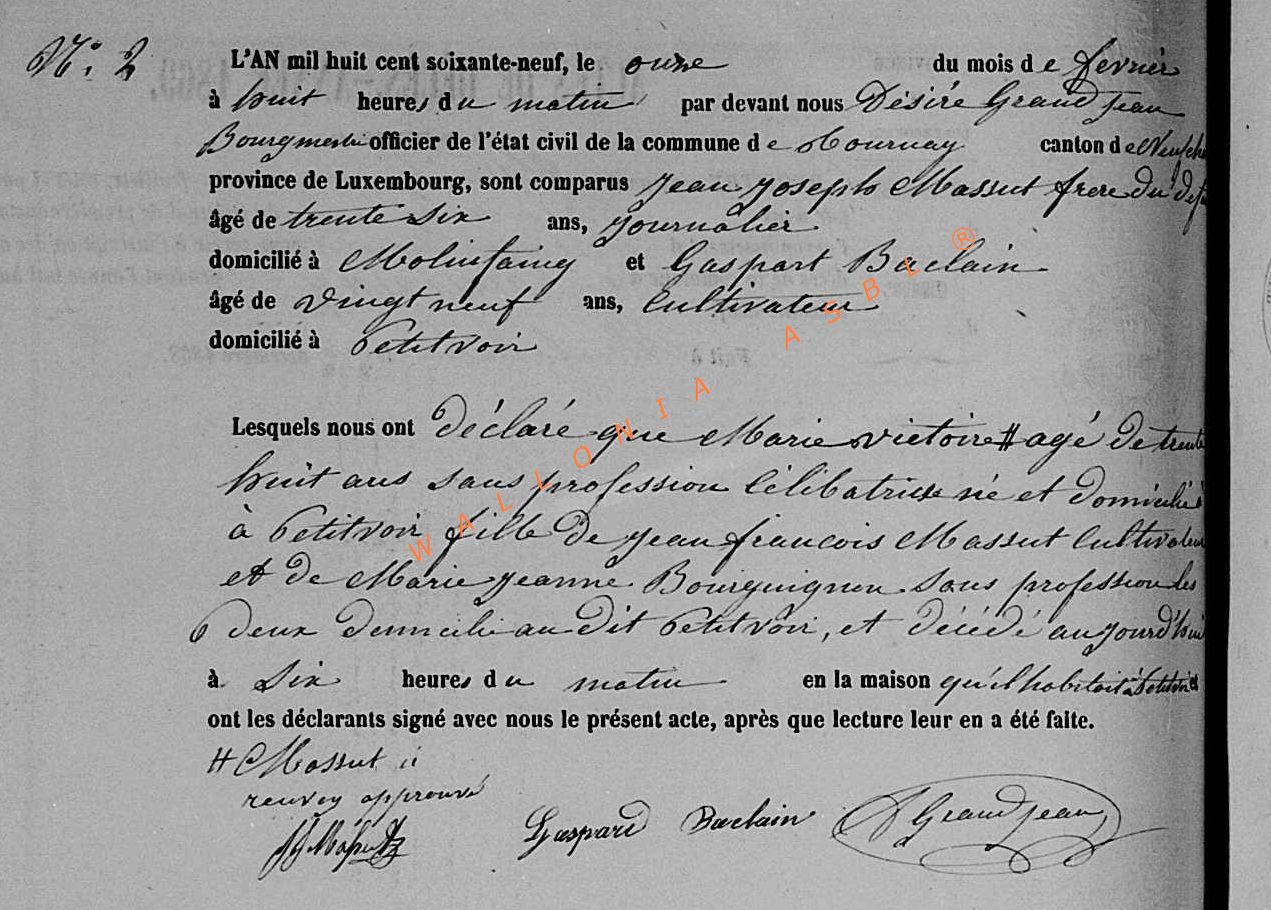 N.º 2
L'AN mil huit cent soixante-neuf, le onze du mois de fevrier
à huit heures du matin par devant nous Désiré Grand Jean
Bourgmestre officier de l'état civil de la commune de Tournay canton de Neufch
province de Luxembourg, sont comparus Jean Joseph Massut frere du def
âgé de trente six ans, Journalier
domicilié à Molinfaing et Gaspart Baclain
âgé de vingt neuf ans, Cultivateur
domicilié à Petitvoir
Lesquels nous ont déclaré que Marie victoire # agé de trente
huit ans sans profession Célibatrice né et domicilié
à Petitvoir fille de Jean francois Massut Cultivateur
et de Marie Jeanne Bourguignon sans profession les
deux domicilié au dit Petitvoir, et décédé aujourd'hui
à six heures du matin en la maison qu'il habitait à Petitvoir et
ont les déclarants signé avec nous le présent acte, après que lecture leur en a été faite.
# Massut
renvoy approuvé
Gaspard Baclain D Grandjean
WALLONIA ASBL ®